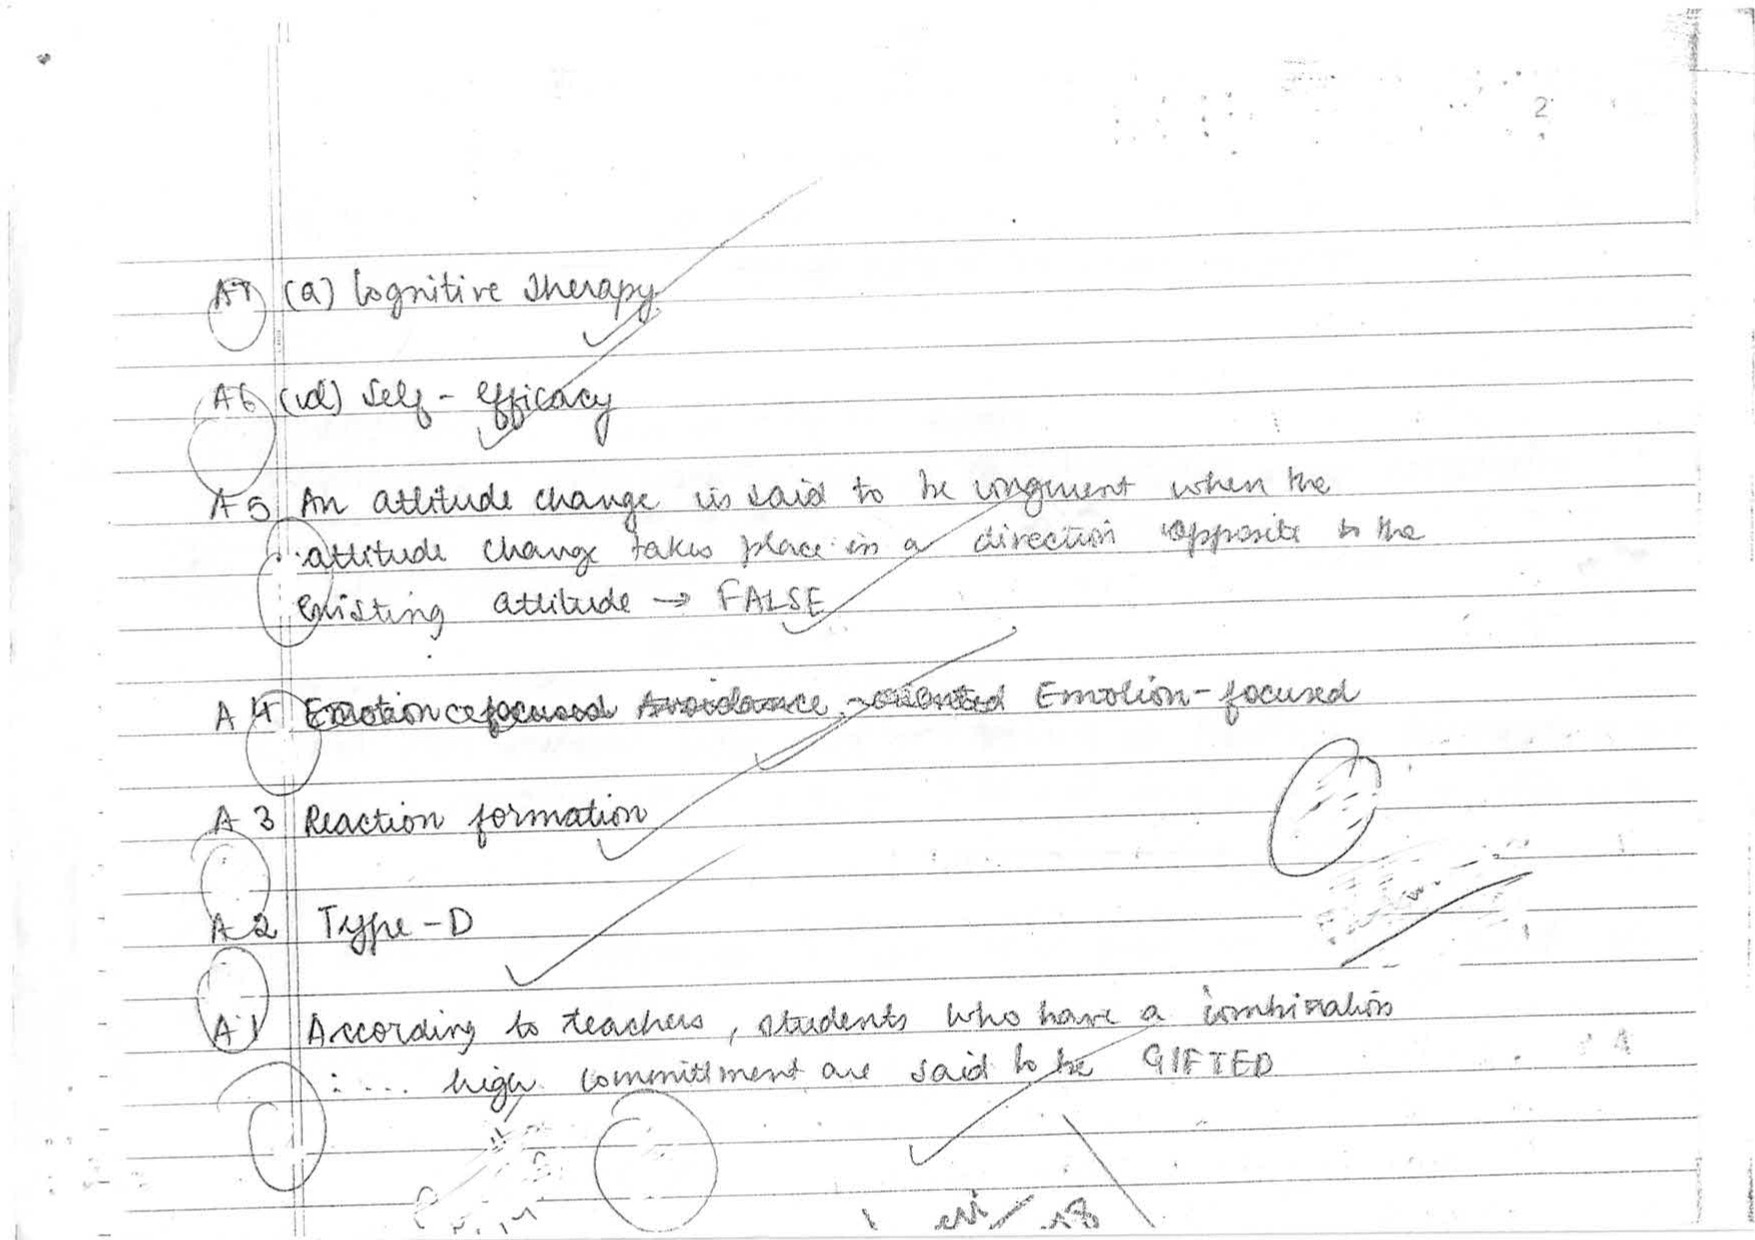 2
A7 (a) Cognitive therapy
A6 (d) Self-efficacy
A5 An attitude change is said to be congruent when the
attitude change takes place in a direction opposite to the
existing attitude → FALSE
A4 Emotion-focused
A3 Reaction formation
A2 Type-D
A1 According to teachers, students who have a combination
.... high committment are said to be GIFTED